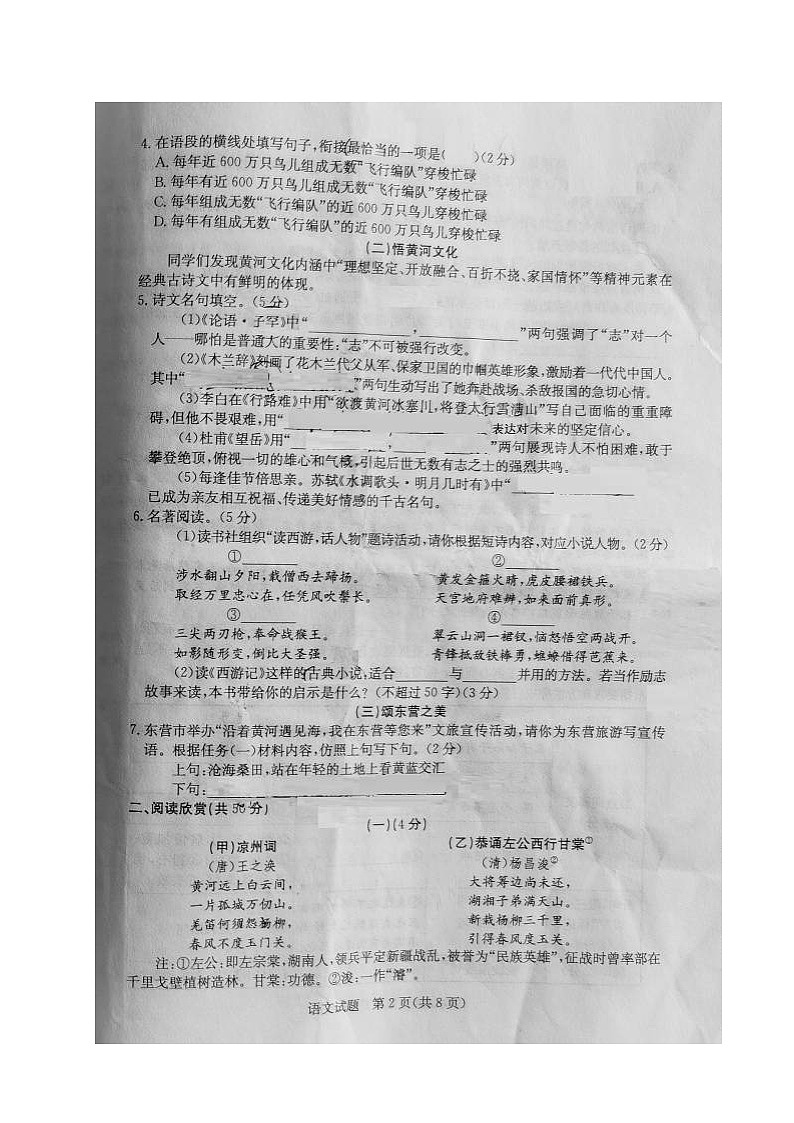 4. 在语段的横线处填写句子,衔接最恰当的一项是(  )(2分)
A. 每年近600万只鸟儿组成无数“飞行编队”穿梭忙碌
B. 每年有近600万只鸟儿组成无数“飞行编队”穿梭忙碌
C. 每年组成无数“飞行编队”的近600万只鸟儿穿梭忙碌
D. 每年有组成无数“飞行编队”的近600万只鸟儿穿梭忙碌
(二)悟黄河文化
同学们发现黄河文化内涵中“理想坚定、开放融合、百折不挠、家国情怀”等精神元素在
经典古诗文中有鲜明的体现。
5. 诗文名句填空。(5分)
(1)《论语·子罕》中“____________,____________”两句强调了“志”对一个
人——哪怕是普通人的重要性:“志”不可被强行改变。
(2)《木兰辞》刻画了花木兰代父从军、保家卫国的巾帼英雄形象,激励着一代代中国人。
其中“____________”两句生动写出了她奔赴战场、杀敌报国的急切心情。
(3)李白在《行路难》中用“欲渡黄河冰塞川,将登太行雪满山”写自己面临的重重障
碍,但他不畏艰难,用“____________表达对未来的坚定信心。
(4)杜甫《望岳》用“____________,____________”两句展现诗人不怕困难,敢于
攀登绝顶,俯视一切的雄心和气概,引起后世无数有志之士的强烈共鸣。
(5)每逢佳节倍思亲。苏轼《水调歌头·明月几时有》中“____________
已成为亲友相互祝福、传递美好情感的千古名句。
6. 名著阅读。(5分)
(1)读书社组织“读西游,话人物”题诗活动,请你根据短诗内容,对应小说人物。(2分)
①________ ②________
涉水翻山夕阳,载僧西去蹄扬。 黄发金箍火睛,虎皮腰裙铁兵。
取经万里忠心在,任凭风吹鬃长。 天宫地府难辨,如来面前真形。
③________ ④________
三尖两刃枪,奉命战猴王。 翠云山洞一裙钗,恼怒悟空两战开。
如影随形变,倒比大圣强。 青锋抵敌铁棒勇,蟭蟟借得芭蕉来。
(2)读《西游记》这样的古典小说,适合________与________并用的方法。若当作励志
故事来读,本书带给你的启示是什么?(不超过50字)(3分)
(三)颂东营之美
7. 东营市举办“沿着黄河遇见海,我在东营等您来”文旅宣传活动,请你为东营旅游写宣传
语。根据任务(一)材料内容,仿照上句写下句。(2分)
上句:沧海桑田,站在年轻的土地上看黄蓝交汇
下句:____________________
二、阅读欣赏(共50分)
(一)(4分)
(甲)凉州词 (乙)恭诵左公西行甘棠①
(唐)王之涣 (清)杨昌浚②
黄河远上白云间, 大将筹边尚未还,
一片孤城万仞山。 湖湘子弟满天山。
羌笛何须怨杨柳, 新栽杨柳三千里,
春风不度玉门关。 引得春风度玉关。
注:①左公:即左宗棠,湖南人,领兵平定新疆战乱,被誉为“民族英雄”,征战时曾率部在
千里戈壁植树造林。甘棠:功德。②浚:一作“濬”。
语文试题 第2页(共8页)